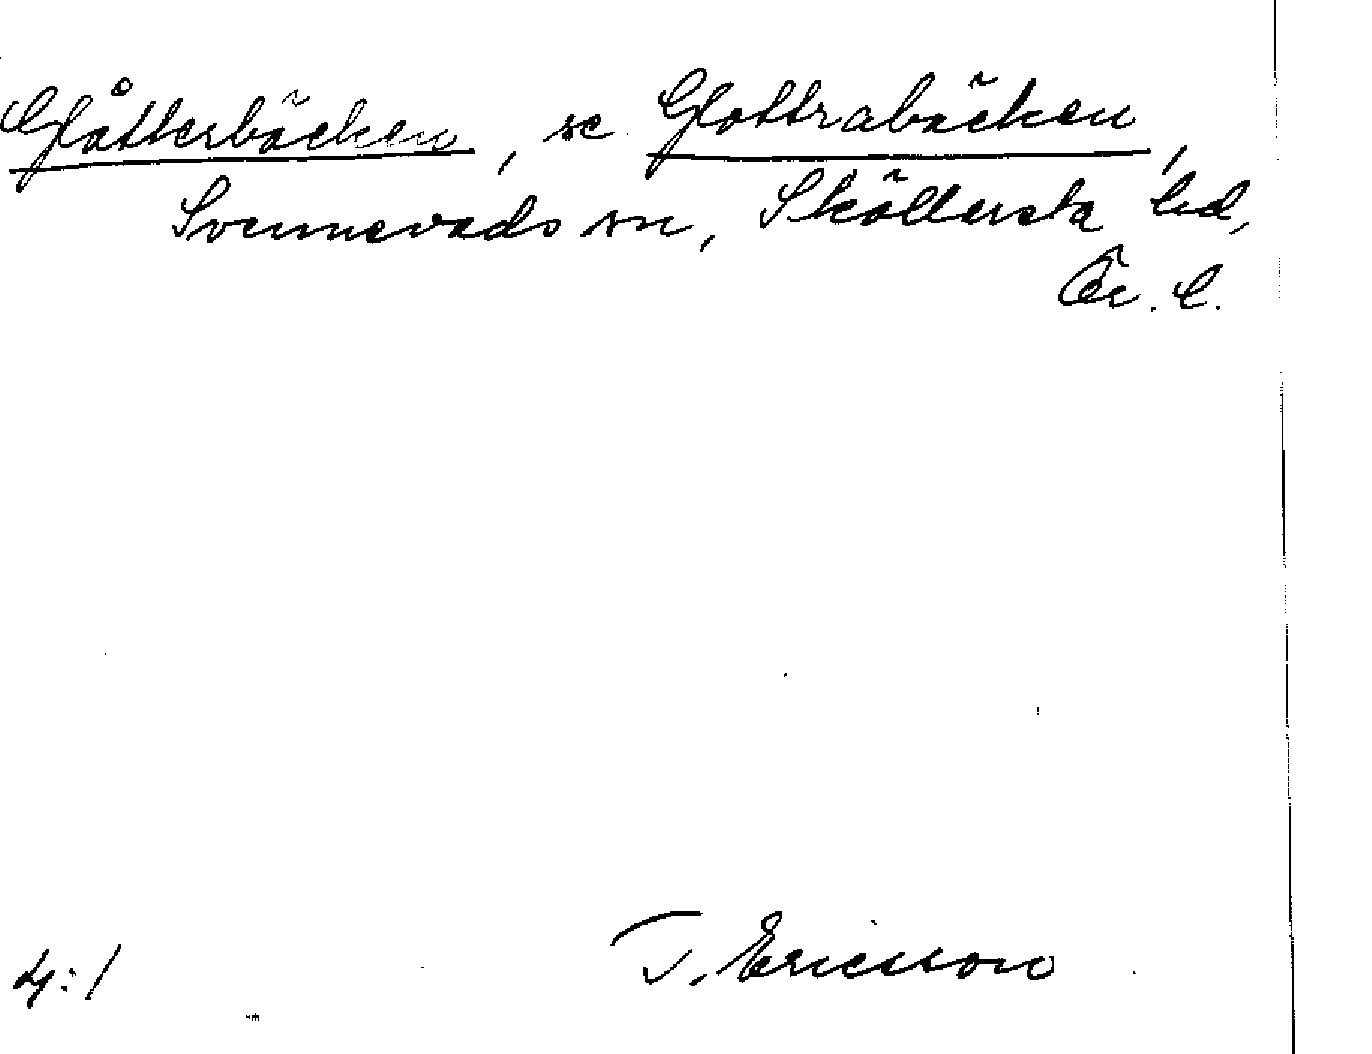 Glåtterbäcken, se Glottrabäcken,
Svennevads sn, Sköllersta hd,
Ör. l.
4:1 T. Ericsson